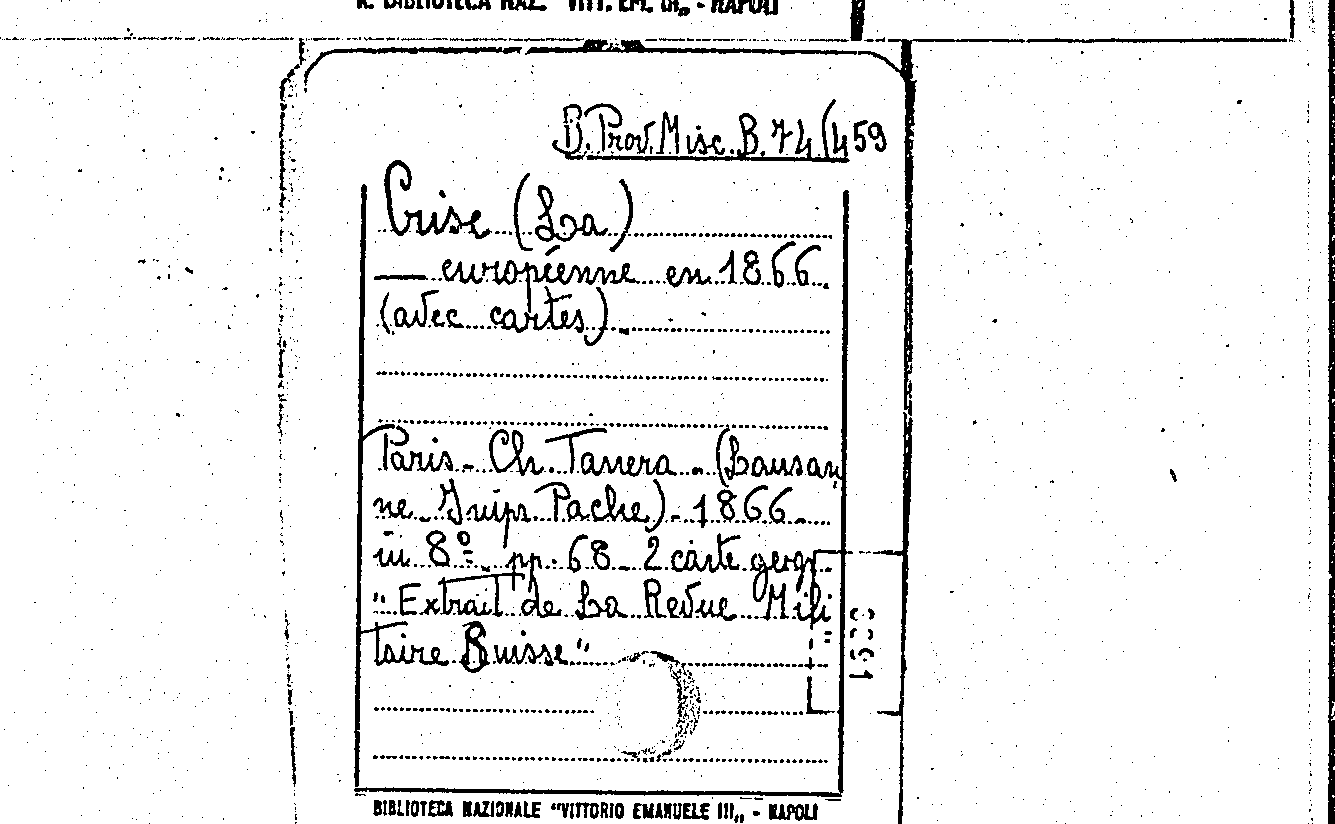 R. BIBLIOTECA NAZ. "VITT. EM. III„ - NAPOLI
B. Prov. Misc. B. 74 (459
Crise (La)
— européenne en 1866.
(avec cartes).
Paris - Ch. Tanera - (Lausan
ne Imipr. Pache) - 1866 -
in 8º - pp. 68 - 2 carte geogr.
"Extrait de La Revue Mili
taire Suisse"
BIBLIOTECA NAZIONALE "VITTORIO EMANUELE III„ - NAPOLI